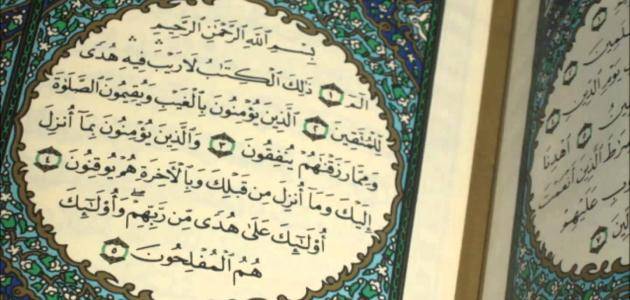 يَوْمِ ٱلدِّينِ
ٱهْدِنَا
صِرَٰطَ ٱلَّذِينَ أَنْعَمْتَ
عَلَيْهِمْ
٧
بِسْمِ ٱللَّهِ ٱلرَّحْمَٰنِ ٱلرَّحِيمِ
الٓمٓ ١ ذَٰلِكَ ٱلْكِتَٰبُ لَا رَيْبَ ۛ فِيهِ ۛ هُدًى
لِّلْمُتَّقِينَ ٢ ٱلَّذِينَ يُؤْمِنُونَ بِٱلْغَيْبِ وَيُقِيمُونَ ٱلصَّلَوٰةَ
وَمِمَّا رَزَقْنَٰهُمْ يُنفِقُونَ ٣ وَٱلَّذِينَ يُؤْمِنُونَ بِمَآ أُنزِلَ
إِلَيْكَ وَمَآ أُنزِلَ مِن قَبْلِكَ وَبِٱلْءَاخِرَةِ هُمْ يُوقِنُونَ ٤
أُو۟لَٰٓئِكَ عَلَىٰ هُدًى مِّن رَّبِّهِمْ ۖ وَأُو۟لَٰٓئِكَ
هُمُ ٱلْمُفْلِحُونَ ٥